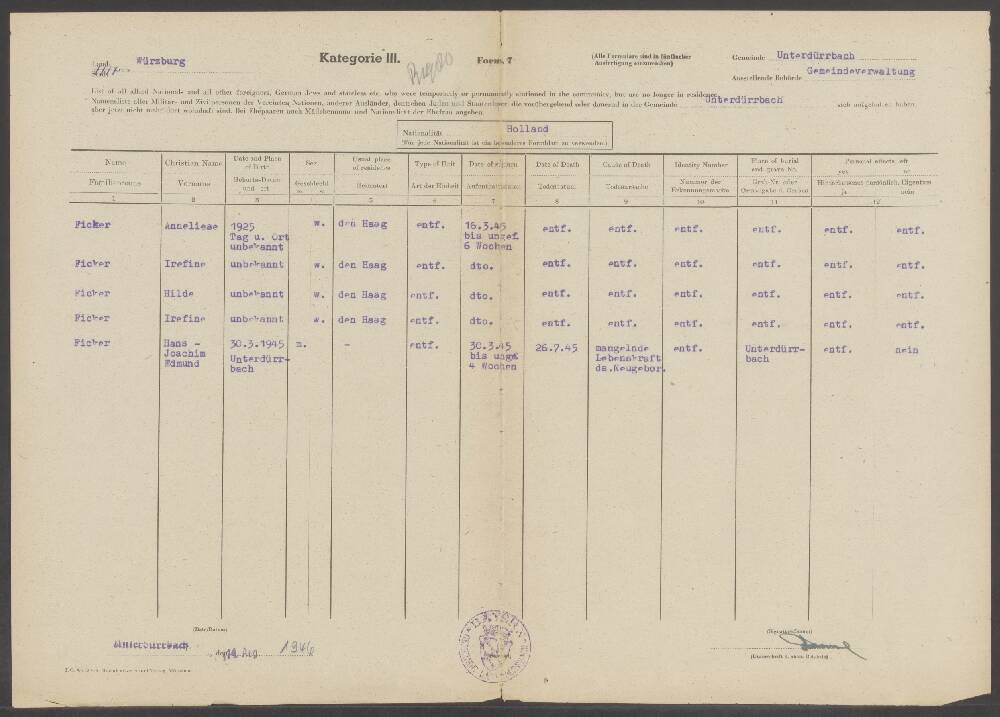 Würzburg
Kategorie III. Form. 7
(Alle Formulare sind in fünffacher
Ausfertigung auszumachen)
Gemeinde Unterdürrbach
Ausstellende Behörde Gemeindeverwaltung
List of all allied Nationals and all other foreigners, German Jews and stateless etc. who were temporarily or permanently stationed in the community, but are no longer in residence.
Namensliste aller Militär- und Zivilpersonen der Vereinten Nationen, anderer Ausländer, deutschen Juden und Staatenloser, die vorübergehend oder dauernd in der Gemeinde Unterdürrbach sich aufgehalten haben,
aber jetzt nicht mehr dort wohnhaft sind. Bei Ehepaaren auch Mädchenname und Nationalität der Ehefrau angeben.
Nationalität Holland
(Für jede Nationalität ist ein besonderes Formblatt zu verwenden.)
Name Christian Name Date and Place Sex Usual place Type of Unit Date of Date of Death Cause of Death Identity Number Place of burial Personal effects
of Birth of residence and grave No. yes no
Familienname Vorname Geburts-Datum Geschlecht Heimatort Art der Einheit Todesdatum Todesursache Nummer der Grab-Nr. oder
und -ort Erkennungsmarke ja nein
1 2 3 4 5 6 7 8 9 10 11 12
Ficker Anneliese 1925 w. den Haag entf. 16.3.45 entf. entf. entf. entf. entf. entf.
Tag u. Ort bis ungef.
unbekannt 6 Wochen
Ficker Irefine unbekannt w. den Haag entf. dto. entf. entf. entf. entf. entf. entf.
Ficker Hilde unbekannt w. den Haag entf. dto. entf. entf. entf. entf. entf. entf.
Ficker Irefine unbekannt w. den Haag entf. dto. entf. entf. entf. entf. entf. entf.
Ficker Hans - 30.3.1945 m. - entf. 30.3.45 26.7.45 mangelnde entf. Unterdürr- entf. nein
Joachim Unterdürr- bis ungf. Lebenskraft bach
Edmund bach 4 Wochen ds.Neugebor.
(Date/Datum)
Unterdürrbach, den 14. Aug. 1946